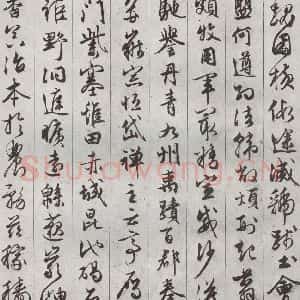 魏困橫假途滅虢踐土會
盟何遵約法韓弊煩刑起翦
頗牧用軍最精宣威沙漠
馳譽丹青九州禹蹟百郡秦
并嶽宗恒岱禪主云亭雁
門紫塞雞田赤城昆池碣石
鉅野洞庭曠遠綿邈巖岫
杳冥治本於農務茲稼穡
Shufawang.CN